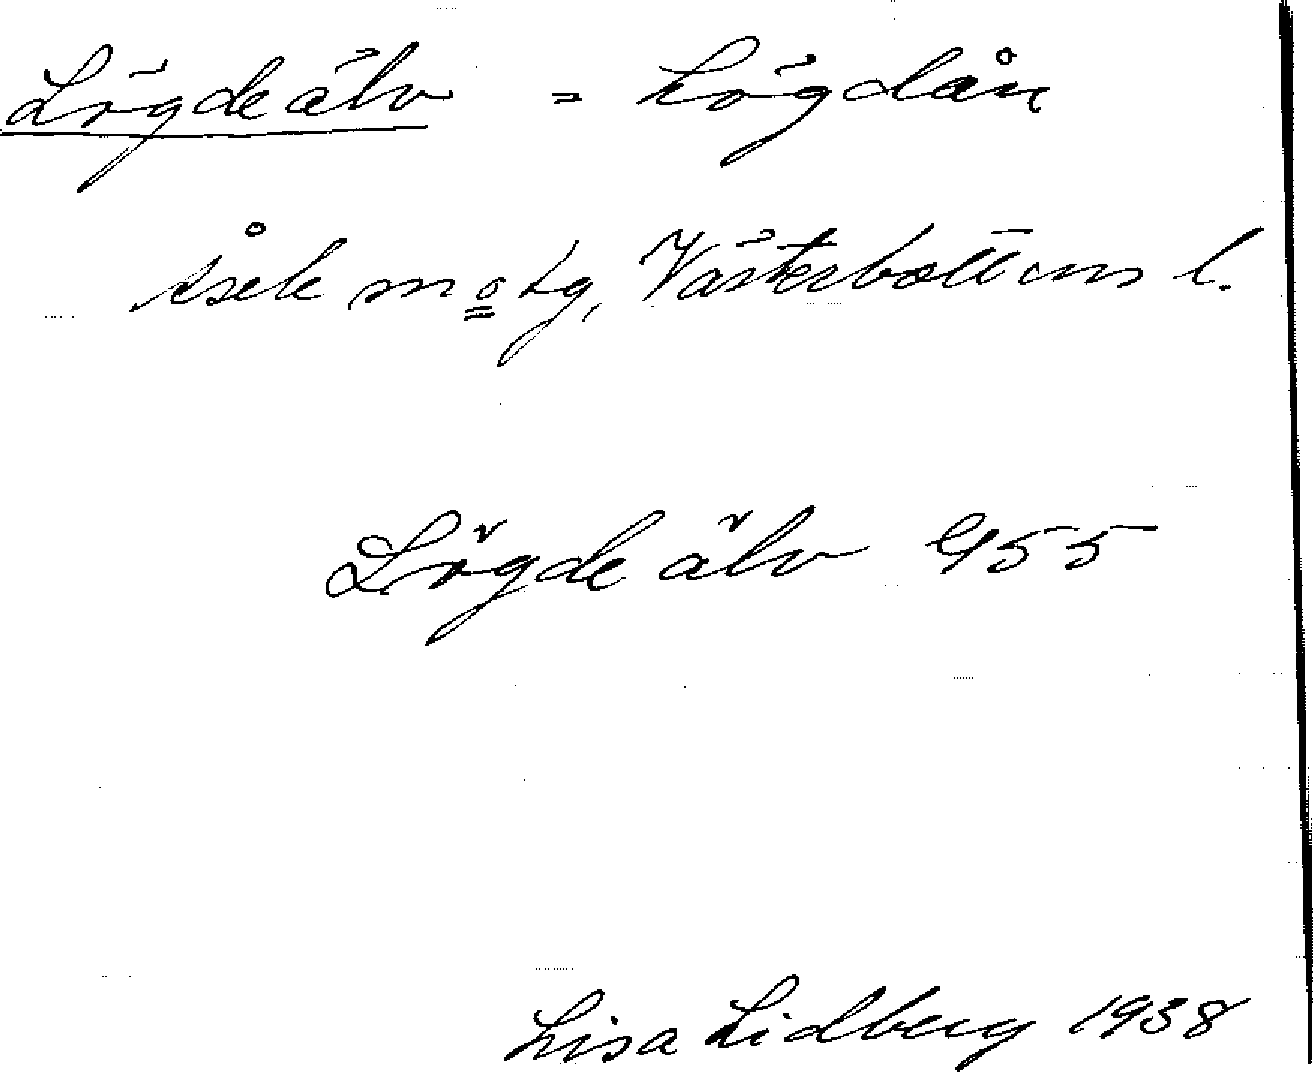 Lögdeälv = Lögdån
Åsele m o Lg, Västerbottens l.
Lögde älv G55
Lisa Lidberg 1938